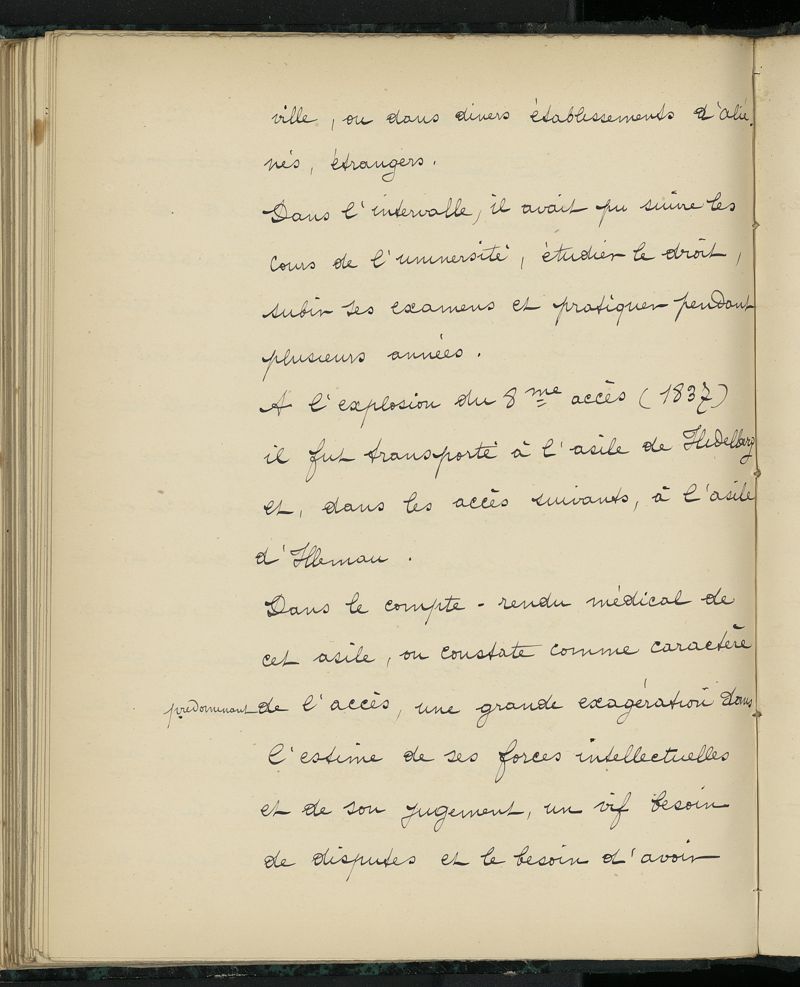 ville, ou dans divers établissements d'alié-
nés, étrangers.
Dans l'intervalle, il avait pu suivre les
cours de l'université, étudier le droit,
subir ses examens et pratiquer pendant
plusieurs années.
A l'explosion du 8me accès (1837)
il fut transporté à l'asile de Hidelberg
et, dans les accès suivants, à l'asile
d'Illenau.
Dans le compte-rendu médical de
cet asile, on constate comme caractère
predominant de l'accès, une grande exagération dans
l'estime de ses forces intellectuelles
et de son jugement, un vif besoin
de disputes et le besoin d'avoir